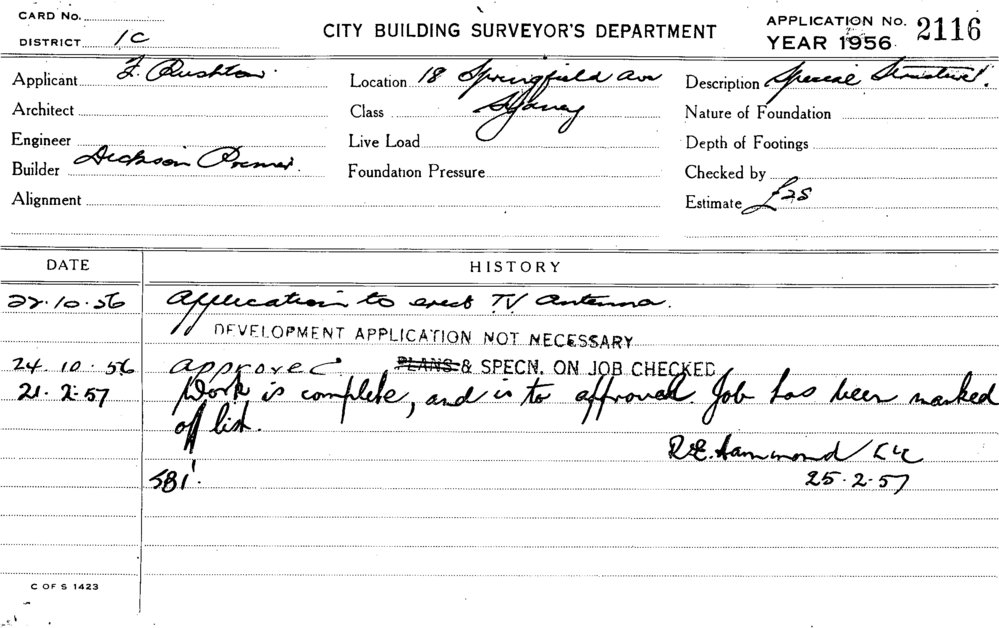 CARD No.
DISTRICT 1C
CITY BUILDING SURVEYOR'S DEPARTMENT
APPLICATION No. 2116
YEAR 1956
Applicant F. Rushton
Location 18 Springfield Ave
Description Special Structure.
Architect
Class Sydney
Nature of Foundation
Engineer
Live Load
Depth of Footings
Builder Dickson Primer.
Foundation Pressure
Checked by
Alignment
Estimate £25
DATE HISTORY
22.10.56 Application to erect TV antenna.
DEVELOPMENT APPLICATION NOT NECESSARY
24.10.56 approved PLANS & SPECN. ON JOB CHECKED
21.2.57 Work is complete, and is to approval. Job has been marked
off list.
R.E. Hammond
25.2.57
SBI.
C OF S 1423